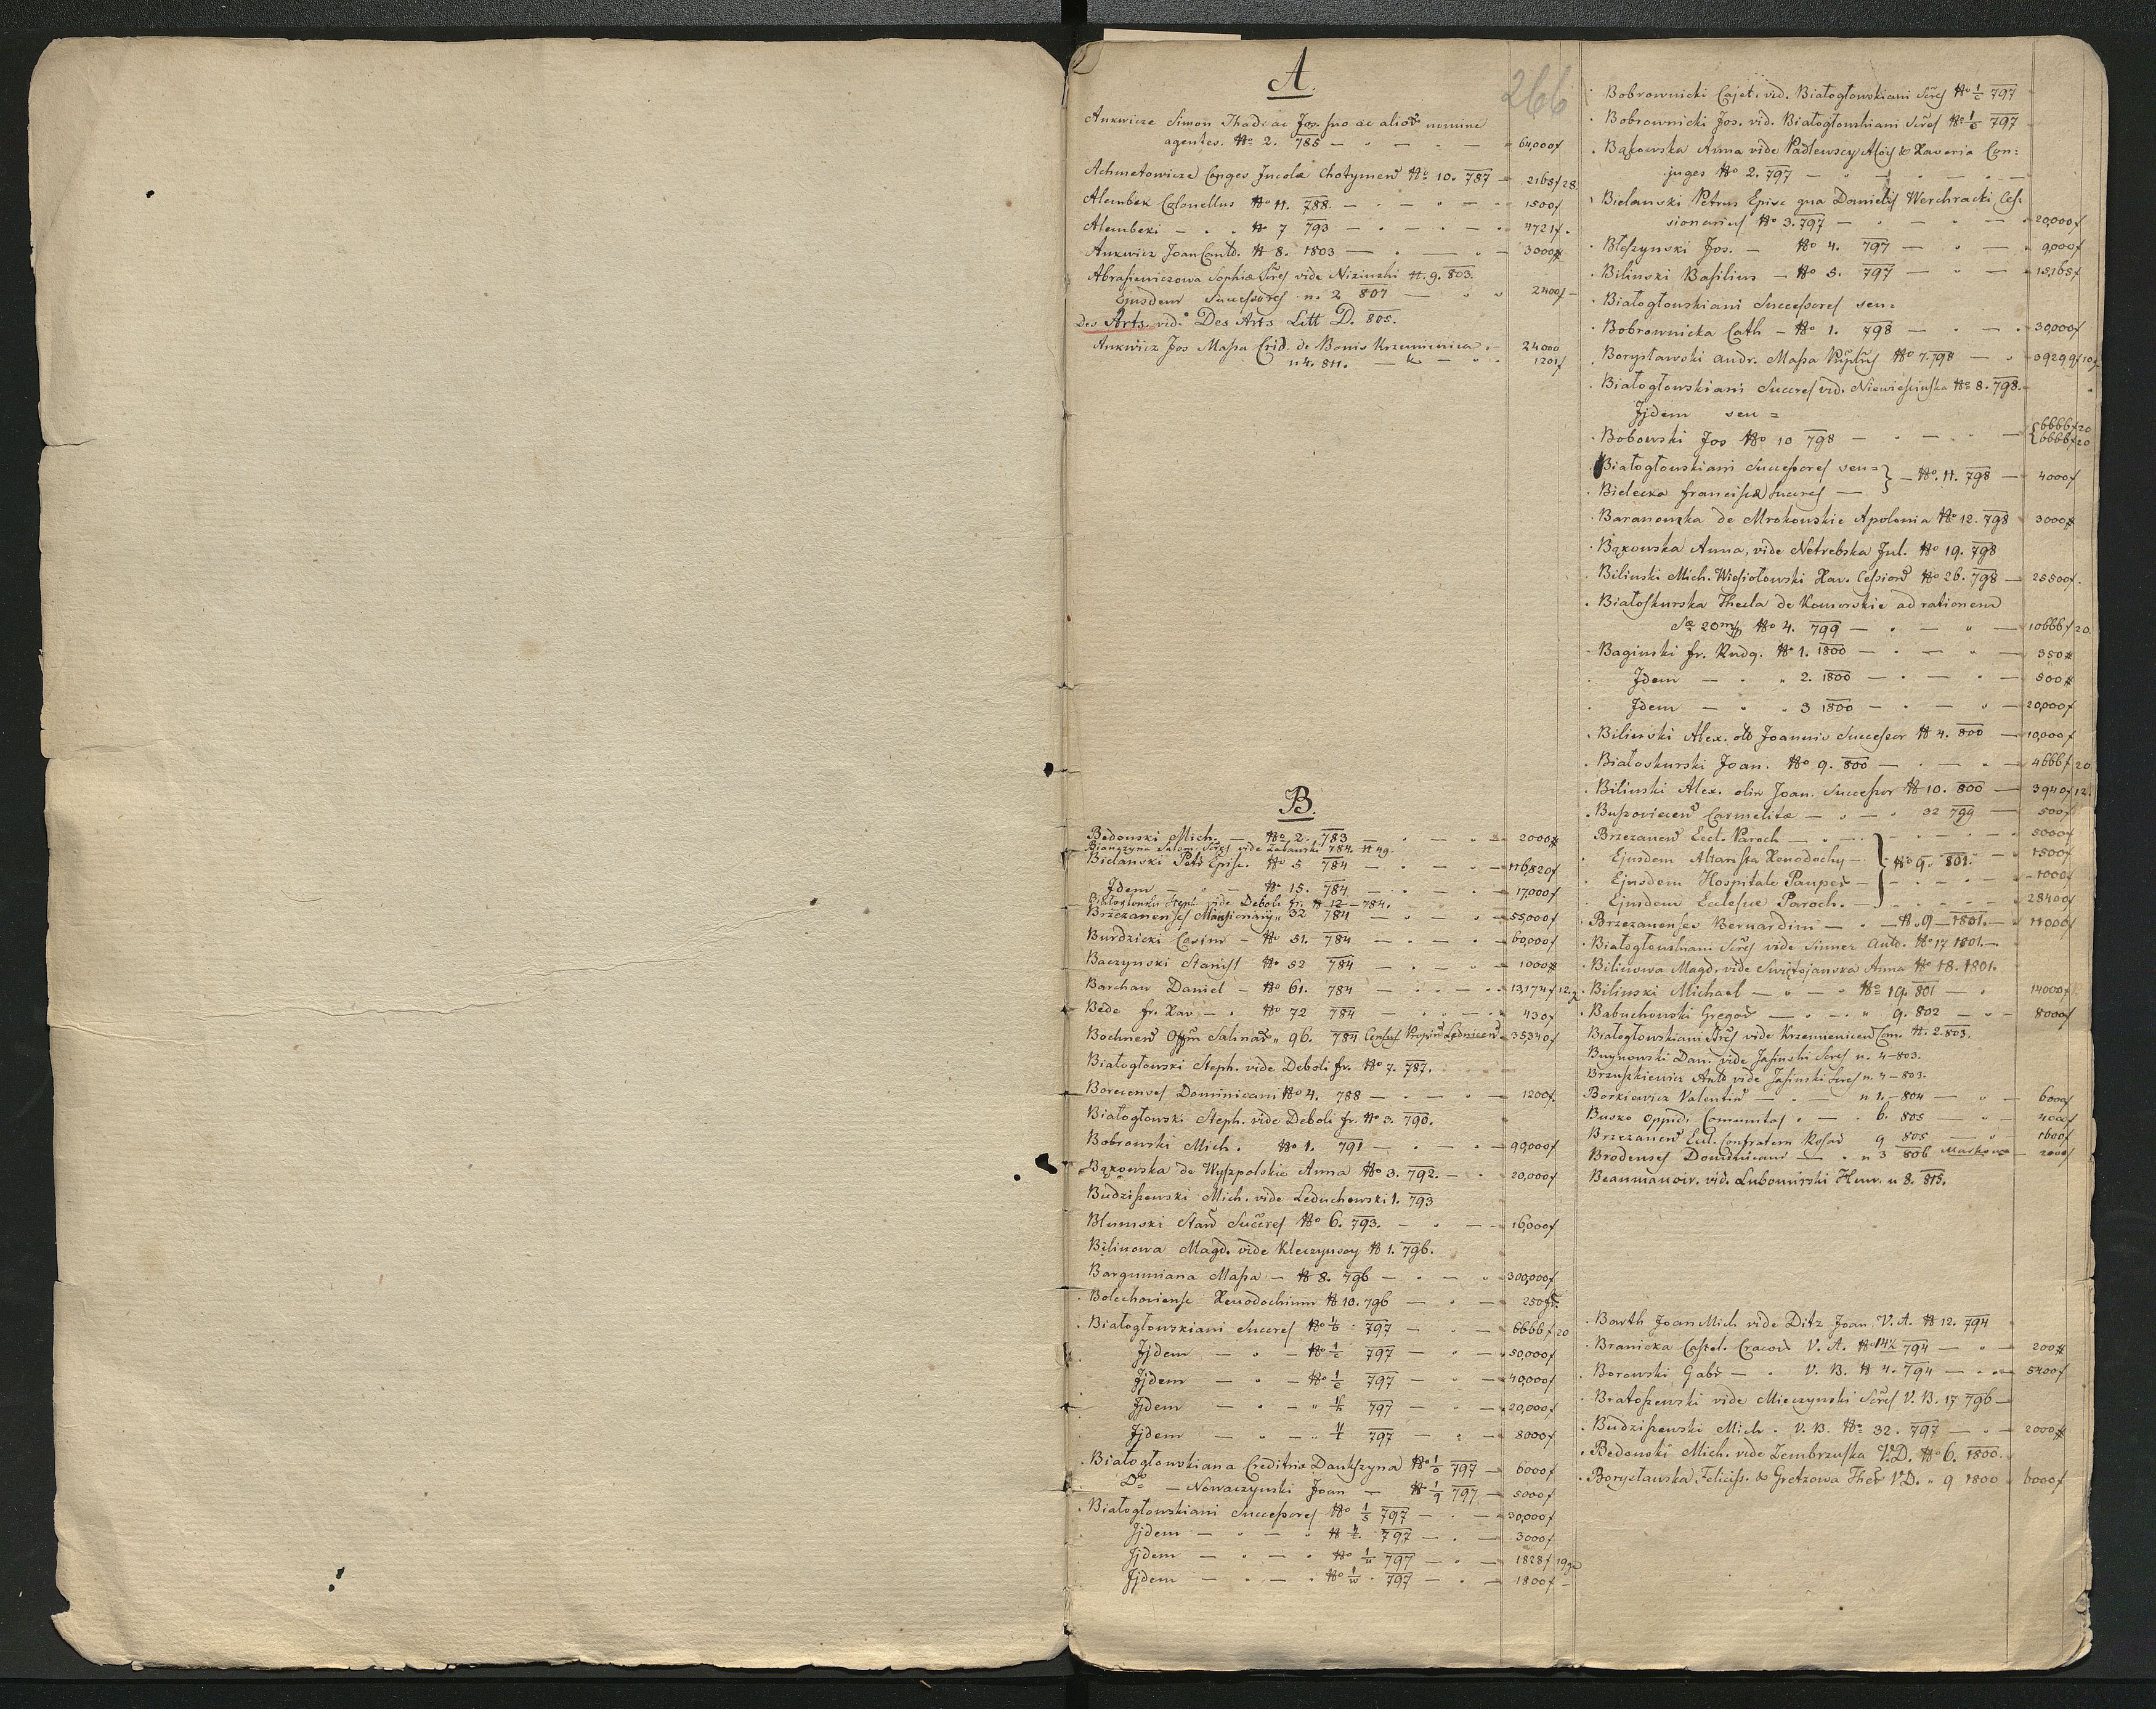 266
A.
Ankwicze Simon Thad. ac Jos. suo ac alior nomine
agentes. No 2. 785 — 64,000f
Achmetowicze Conges Incolæ Chotymens No 10. 787 — 2168f 28.
Alembek Colonellus No 11. 788. — 1500f
Alembeki — No 7 793 — 4721f.
Ankwicz Joan Comtd. N 8. 1803 — 3000#
Abrasiewiczowa Sophiæ Sres vide Nizinski N. 9. 803.
Ejusdem Successores n. 2 807 — 2400f —
Des Arts. vid. Des Arts Litt D. 805.
Ankwicz Jos Massa Crid. de Bonis Krzemienica — 24000
n 4. 811. — 1201f
B.
Bedonski Mich. — No 2. 783 — 2000#
Salom. Sres vide Zabawski 784. N 49.
Bielanski Petr Episc. No 5 784 — 116,820f
Idem — No 15. 784 — 17,000f
Białogłowski Steph. vide Deboli fr. N 12 — 784.
Brzezanenses Mansionarij " 32 784 — 55,000f
Burdzicki Casim — No 51. 784 — 60,000f
Baczynski Stanisl No 52 784 — 1000#
Barchan Daniel — No 61. 784 — 13,174f 12.
Bede fr. Xav — No 72 784 — 430f
Bochnens Offm Salinar " 96. 784 — 35340f
Białogłowski Steph. vide Deboli fr. No 7. 787.
Borecenses Dominicani No 4. 788 — 1200f.
Białogłowski Steph. vide Deboli fr. No 3. 790.
Bobrowski Mich. No 1. 791 — 90,000f
Bąkowska de Wyszpolskie Anna No 3. 792. — 20,000f
Budziszewski Mich. vide Leduchowski 1. 793
Blumski Stan Succres No 6. 793. — 16,000f
Bilinowa Magd. vide Kleczynscy N 1. 796.
Bargumiana Massa — N 8. 796 — 300,000f
Bolechoviense Xenodochium N 10. 796 — 250f
Białogłowskiani Succres No 1/b 797 — 6666f 20
Ijdem — No 1/c 797 — 50,000f
Ijdem — No 1/e 797 — 40,000f
Ijdem — " 1/k 797 — 20,000f
Ijdem — " 797 — 8000f
Białogłowskiana Creditrix Dankszyna No 1/o 797 — 6000f
Do — Nowaczynski Joan — No 1/q 797. — 5000f
Białogłowskiani Successores No 1/s 797 — 30,000f
Ijdem — 797 — 3000f
Ijdem — No 1/u 797 — 1828f 19
Ijdem — No 1/w 797 — 1800f —
Bobrownicki Cajet. vid. Białogłowskiani Sres No 1/c 797
Bobrownicki Jos. vid. Białogłowskiani Sres No 1/e 797
Bąkowska Anna vide Padlewscy Aloij & Xaveria Con=
juges No 2. 797 —
Bielanski Petrus Episc qua Danielis Werchracki Ces=
sionarius No 3. 797 — 20,000f
Błeszynski Jos. — No 4. 797 — 9,000f
Bilinski Basilius — No 5. 797 — 15,165f
Białogłowskiani Successores seu=
Bobrownicka Cath — No 1. 798 — 30,000f
Borysławski Andr. Massa No 7. 798 — 39299f 10
Białogłowskiani Succres vid. Niewiescinska No 8. 798.
Ijdem seu =
Bobowski Jos No 10 798 — { 6666f 20 6666f 20
Białogłowskiani Successores seu= } — No. 11. 798 — 4000f
Bielecka Franciscæ Succres —
Baranowska de Mrokowskie Apolonia No 12. 798 3000#
Bąkowska Anna, vide Netrebska Jul. No 19. 798
Bilinski Mich. Wiesiołowski Xav. Cessions No 26. 798 — 25500f.
Białoskurska Thecla de Komorskie ad rationem
Sæ 20m No 4. 799 — 10666f 20.
Baginski fr. Rudg. No 1. 1800 — 350#
Idem — " 2. 1800 — 500#
Idem — " 3 1800 — 20,000f
Bilinski Alex. olim Joannis Successor N 4. 800 — 10,000f
Białoskurski Joan. No 9. 800 — 4666f 20
Bilinski Alex. olim Joan. Successor N 10. 800 — 3940f 12.
Bussoviens Carmelitæ — 32 799 — 500f
Brzezanens Eccl. Paroch — 5000f
Ejusdem Altarista Xenodochy — } No 9. 801. — 1500f
Ejusdem Hospitale Pauper — 1000f
Ejusdem Ecclesiæ Paroch. — 28400f
Brzezanenses Bernardini — N. 9 — 1801. — 11000f
Białogłowskiani Sres vide Sinner Anto. No 17 1801. —
Bilinowa Magd. vide Swiętojanska Anna No 18. 1801.
Bilinski Michael — No 19. 801 — 14000f
Babuchowski Gregor — " 9. 802 — 8000f
Białogłowskiani Sres vide Krzemieniecens Com. N. 2. 803.
Buynowski Dan. vide Jasinski Sres n. 4 — 803.
Bruszkiewicz Anto vide Jasinski Sres n. 4 — 803.
Borkiewicz Valentin — n 1. — 804 — 6000f
Busko Oppidi Comunitas — 6. 805 — 400f
Brzezanens Eccl. Confratern Rosar 9 805 — 1600f
Brodenses Dominicani — n 3 806 — 2000f
Beaumanoir. vid. Lubomirski Henr. n 8. 815.
Barth Joan Mich vide Ditz Joan. V. A. N 12. 794
Branicka Castel. Cracov V. A. No 14½ 794 — 200#
Borowski Gabr — V. B. N 4. 794 — 5400f
Bratoszewski vide Mieczynski Sres V. B. 17 796 —
Budziszewski Mich. V. B. No 32. 797 — 2000#
Bedonski Mich. vide Zembrzuska V.D. No 6. 1800.
Borysławska Feliciss. & Gretzowa Ther V.D. " 9 1800 6000f